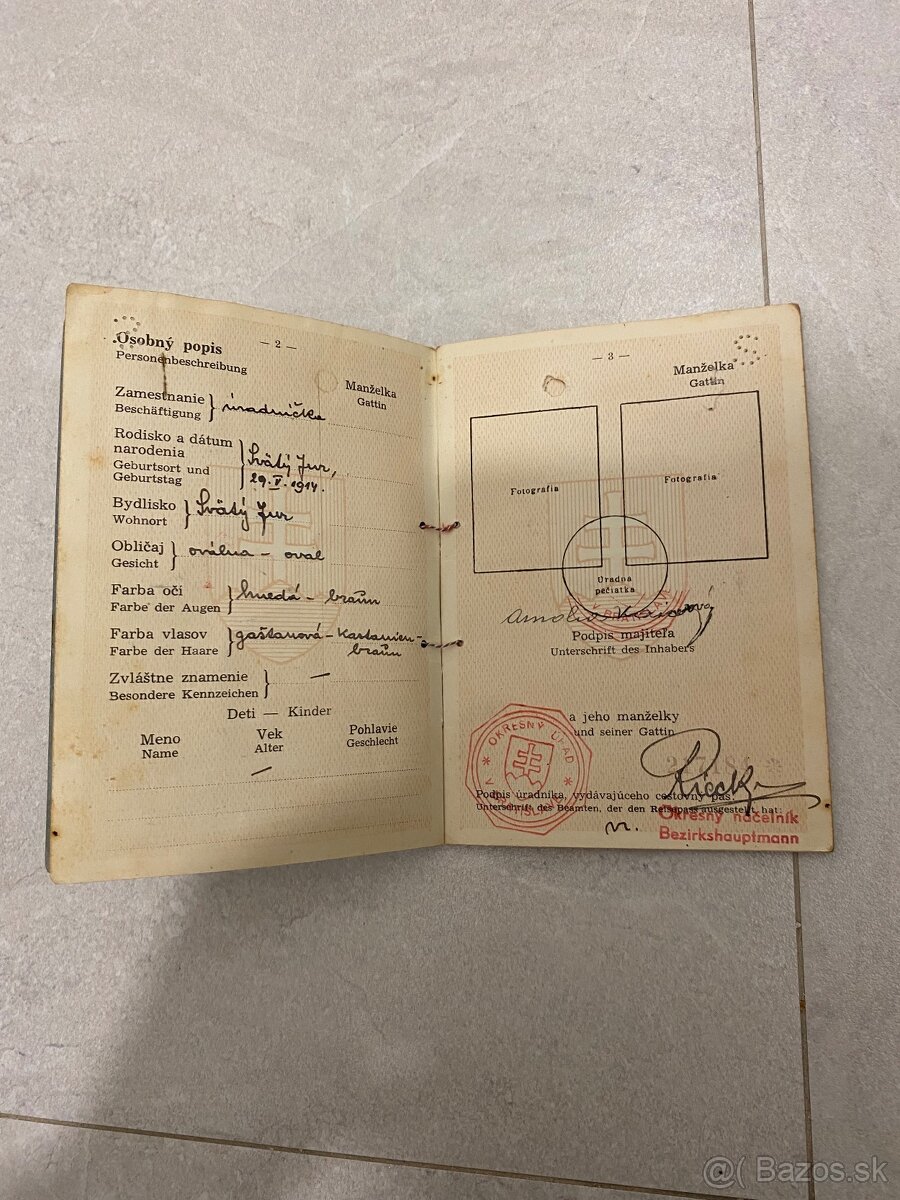 — 2 —
Osobný popis
Personenbeschreibung
Manželka
Gattin
Zamestnanie
Beschäftigung
úradníčka
Rodisko a dátum
narodenia
Geburtsort und
Geburtstag
Svätý Jur,
29. V. 1914.
Bydlisko
Wohnort
Svätý Jur
Obličaj
Gesicht
oválna - oval
Farba očí
Farbe der Augen
hnedá - braun
Farba vlasov
Farbe der Haare
gaštanová - Kastanien-
braun
Zvláštne znamenie
Besondere Kennzeichen
—
Deti — Kinder
Meno
Name
Vek
Alter
Pohlavie
Geschlecht
—
— 3 —
Manželka
Gattin
Fotografia
Fotografia
Úradna
pečiatka
Podpis majiteľa
Unterschrift des Inhabers
a jeho manželky
und seiner Gattin
OKRESNÝ ÚRAD
V BRATISLAVE
Podpis úradníka, vydávajúceho cestovný pas
Unterschrift des Beamten, der den Reisepass ausgestellt hat:
Okresný náčelník
Bezirkshauptmann
@( Bazos.sk